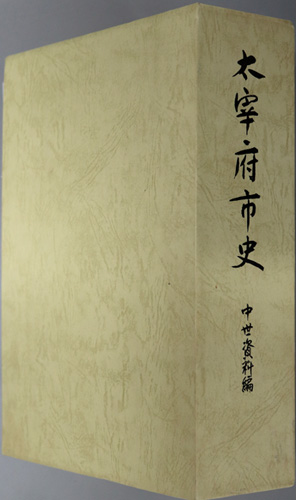 太宰府市史
中世資料編